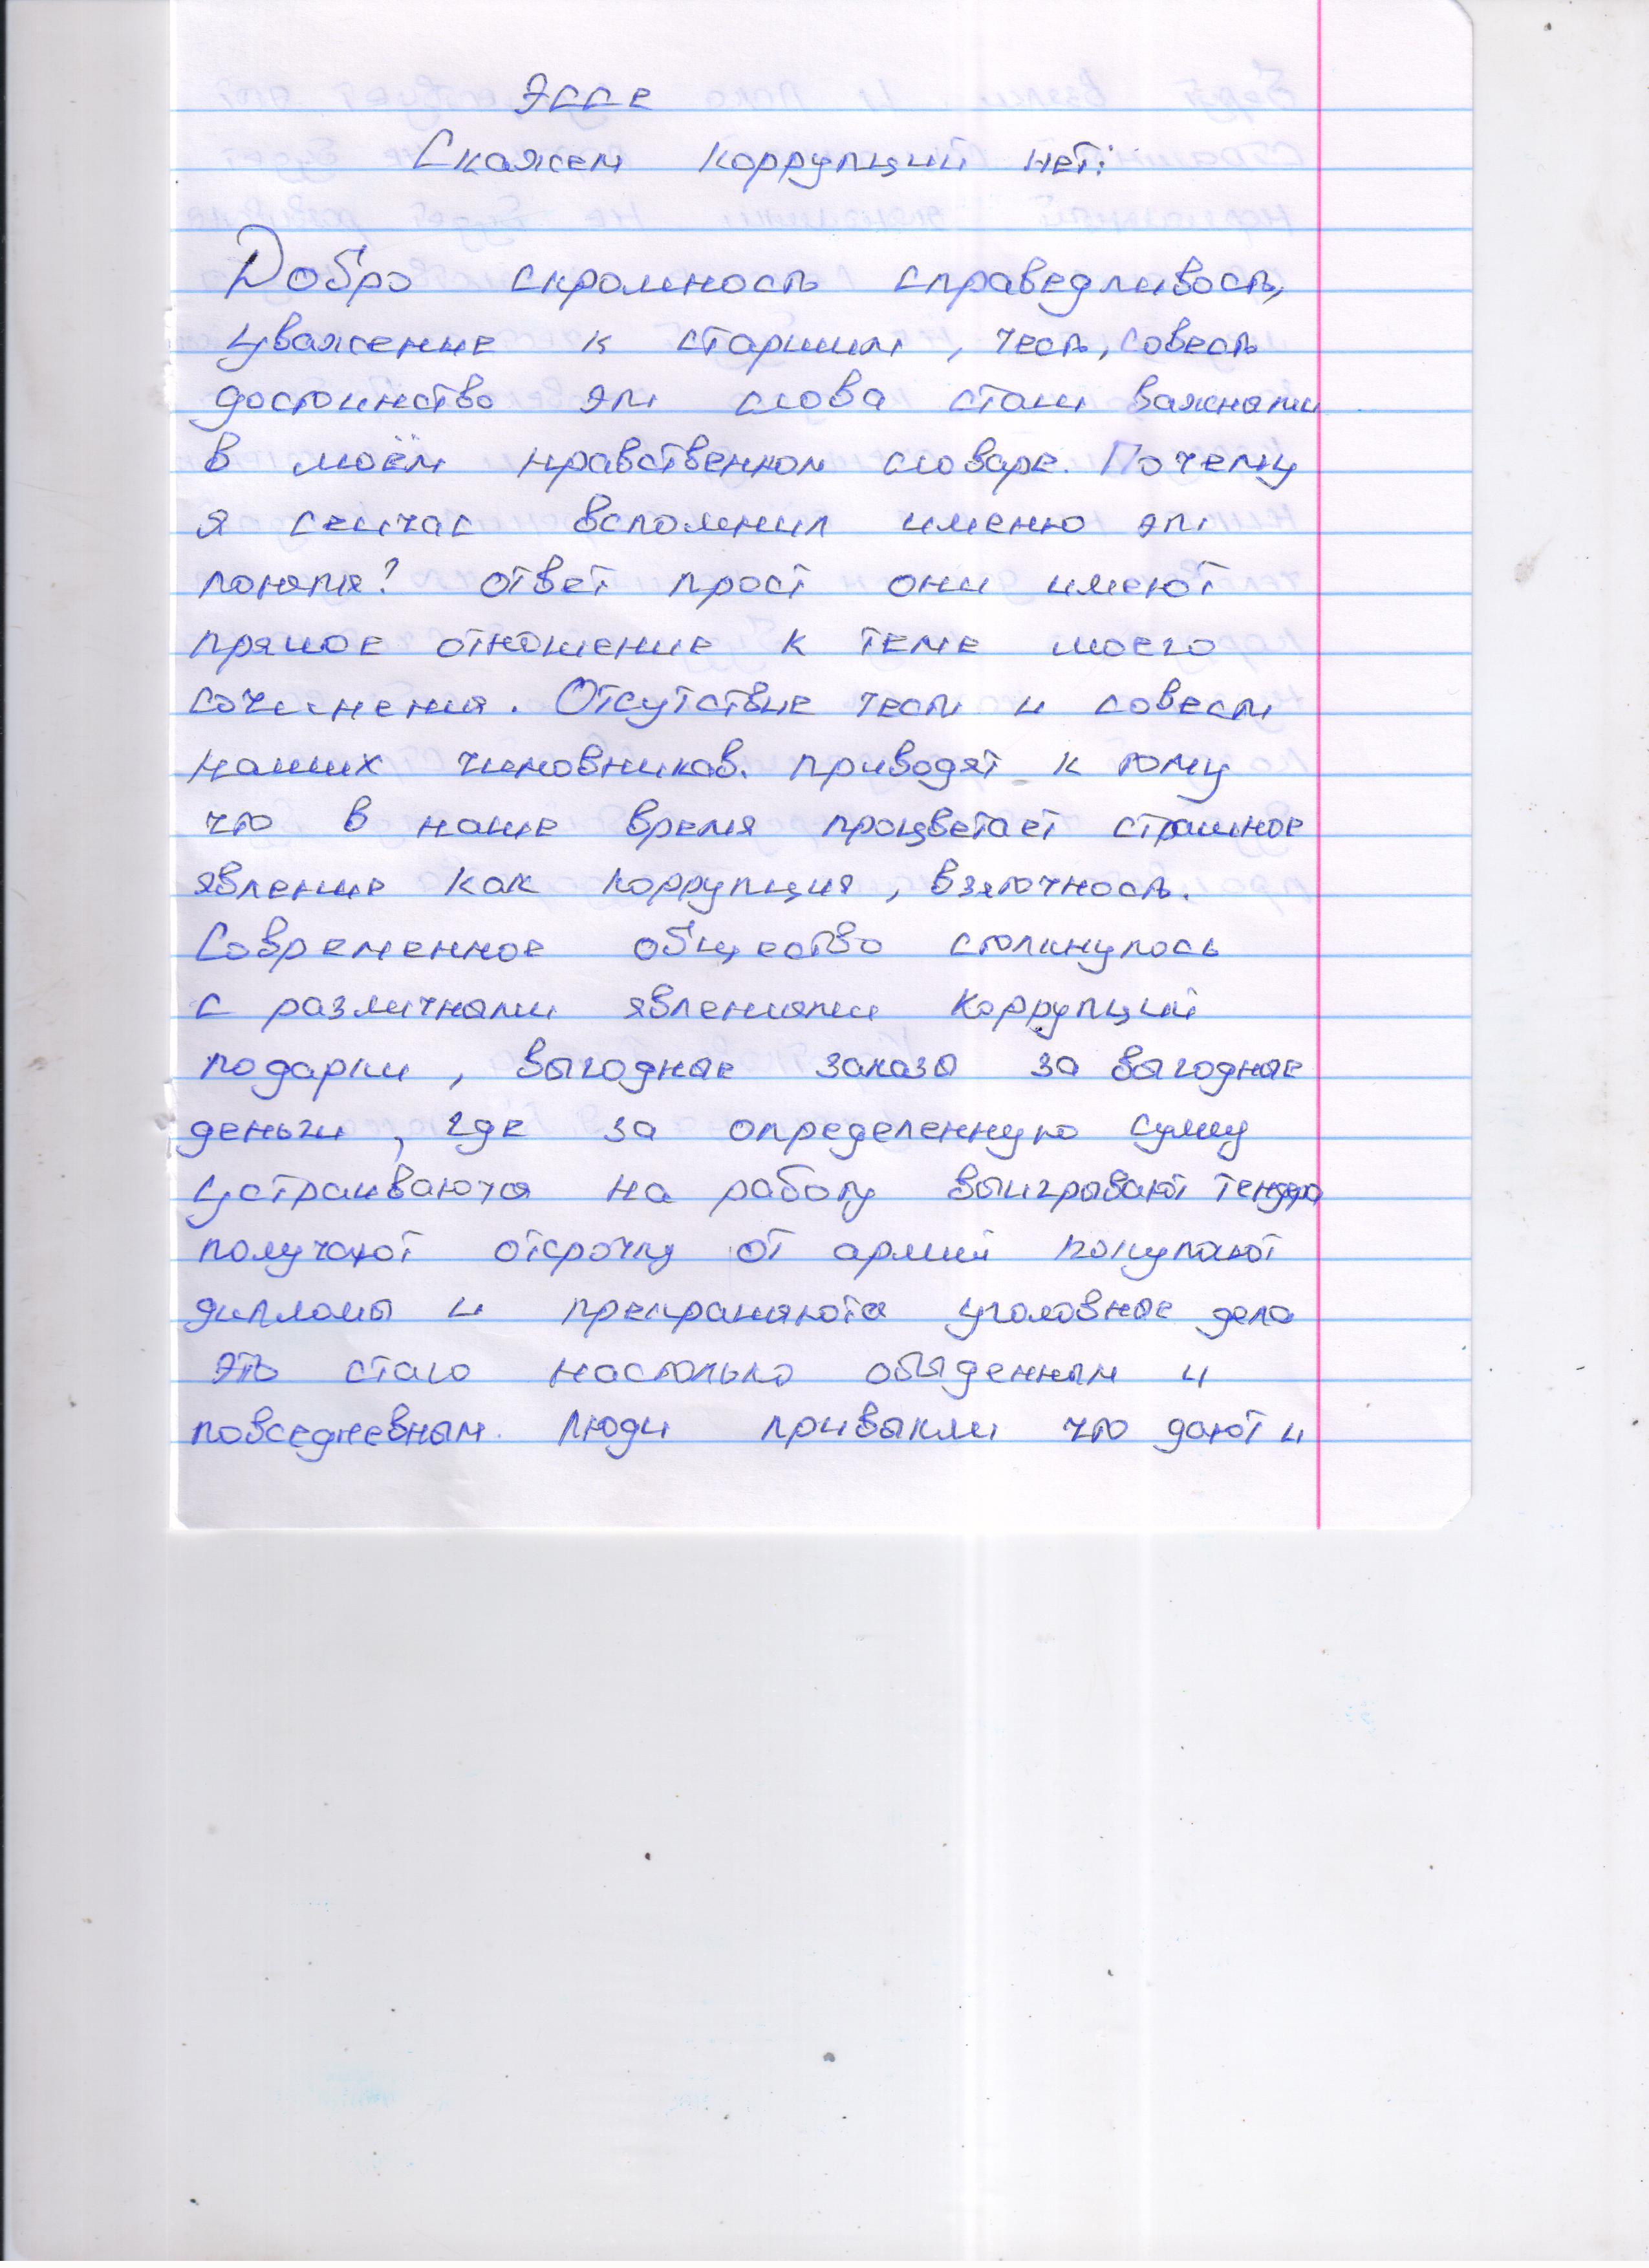 Эссе
Скажем коррупций нет!
Добро скромность справедливость,
уважение к старшим, честь, совесть
достоинство эти слова стали важными
в моём нравственном словаре. Почему
я сейчас вспомнил именно эти
понятия? ответ прост они имеют
прямое отношение к теме моего
сочинения. Отсутствие чести и совести
наших чиновников. приводят к тому
что в наше время процветает страшное
явление как коррупция, взяточность.
Современное общество столкнулось
с различными явлениями коррупций
подарки, выгодные заказы за выгодные
деньги, где за определенную сумму
устраиваются на работу выигрывают тендеры
получают отсрочку от армий покупают
дипломы и прекращяются уголовные дела
это стало настолько обыденным и
повседневным. Люди привыкли что дают и